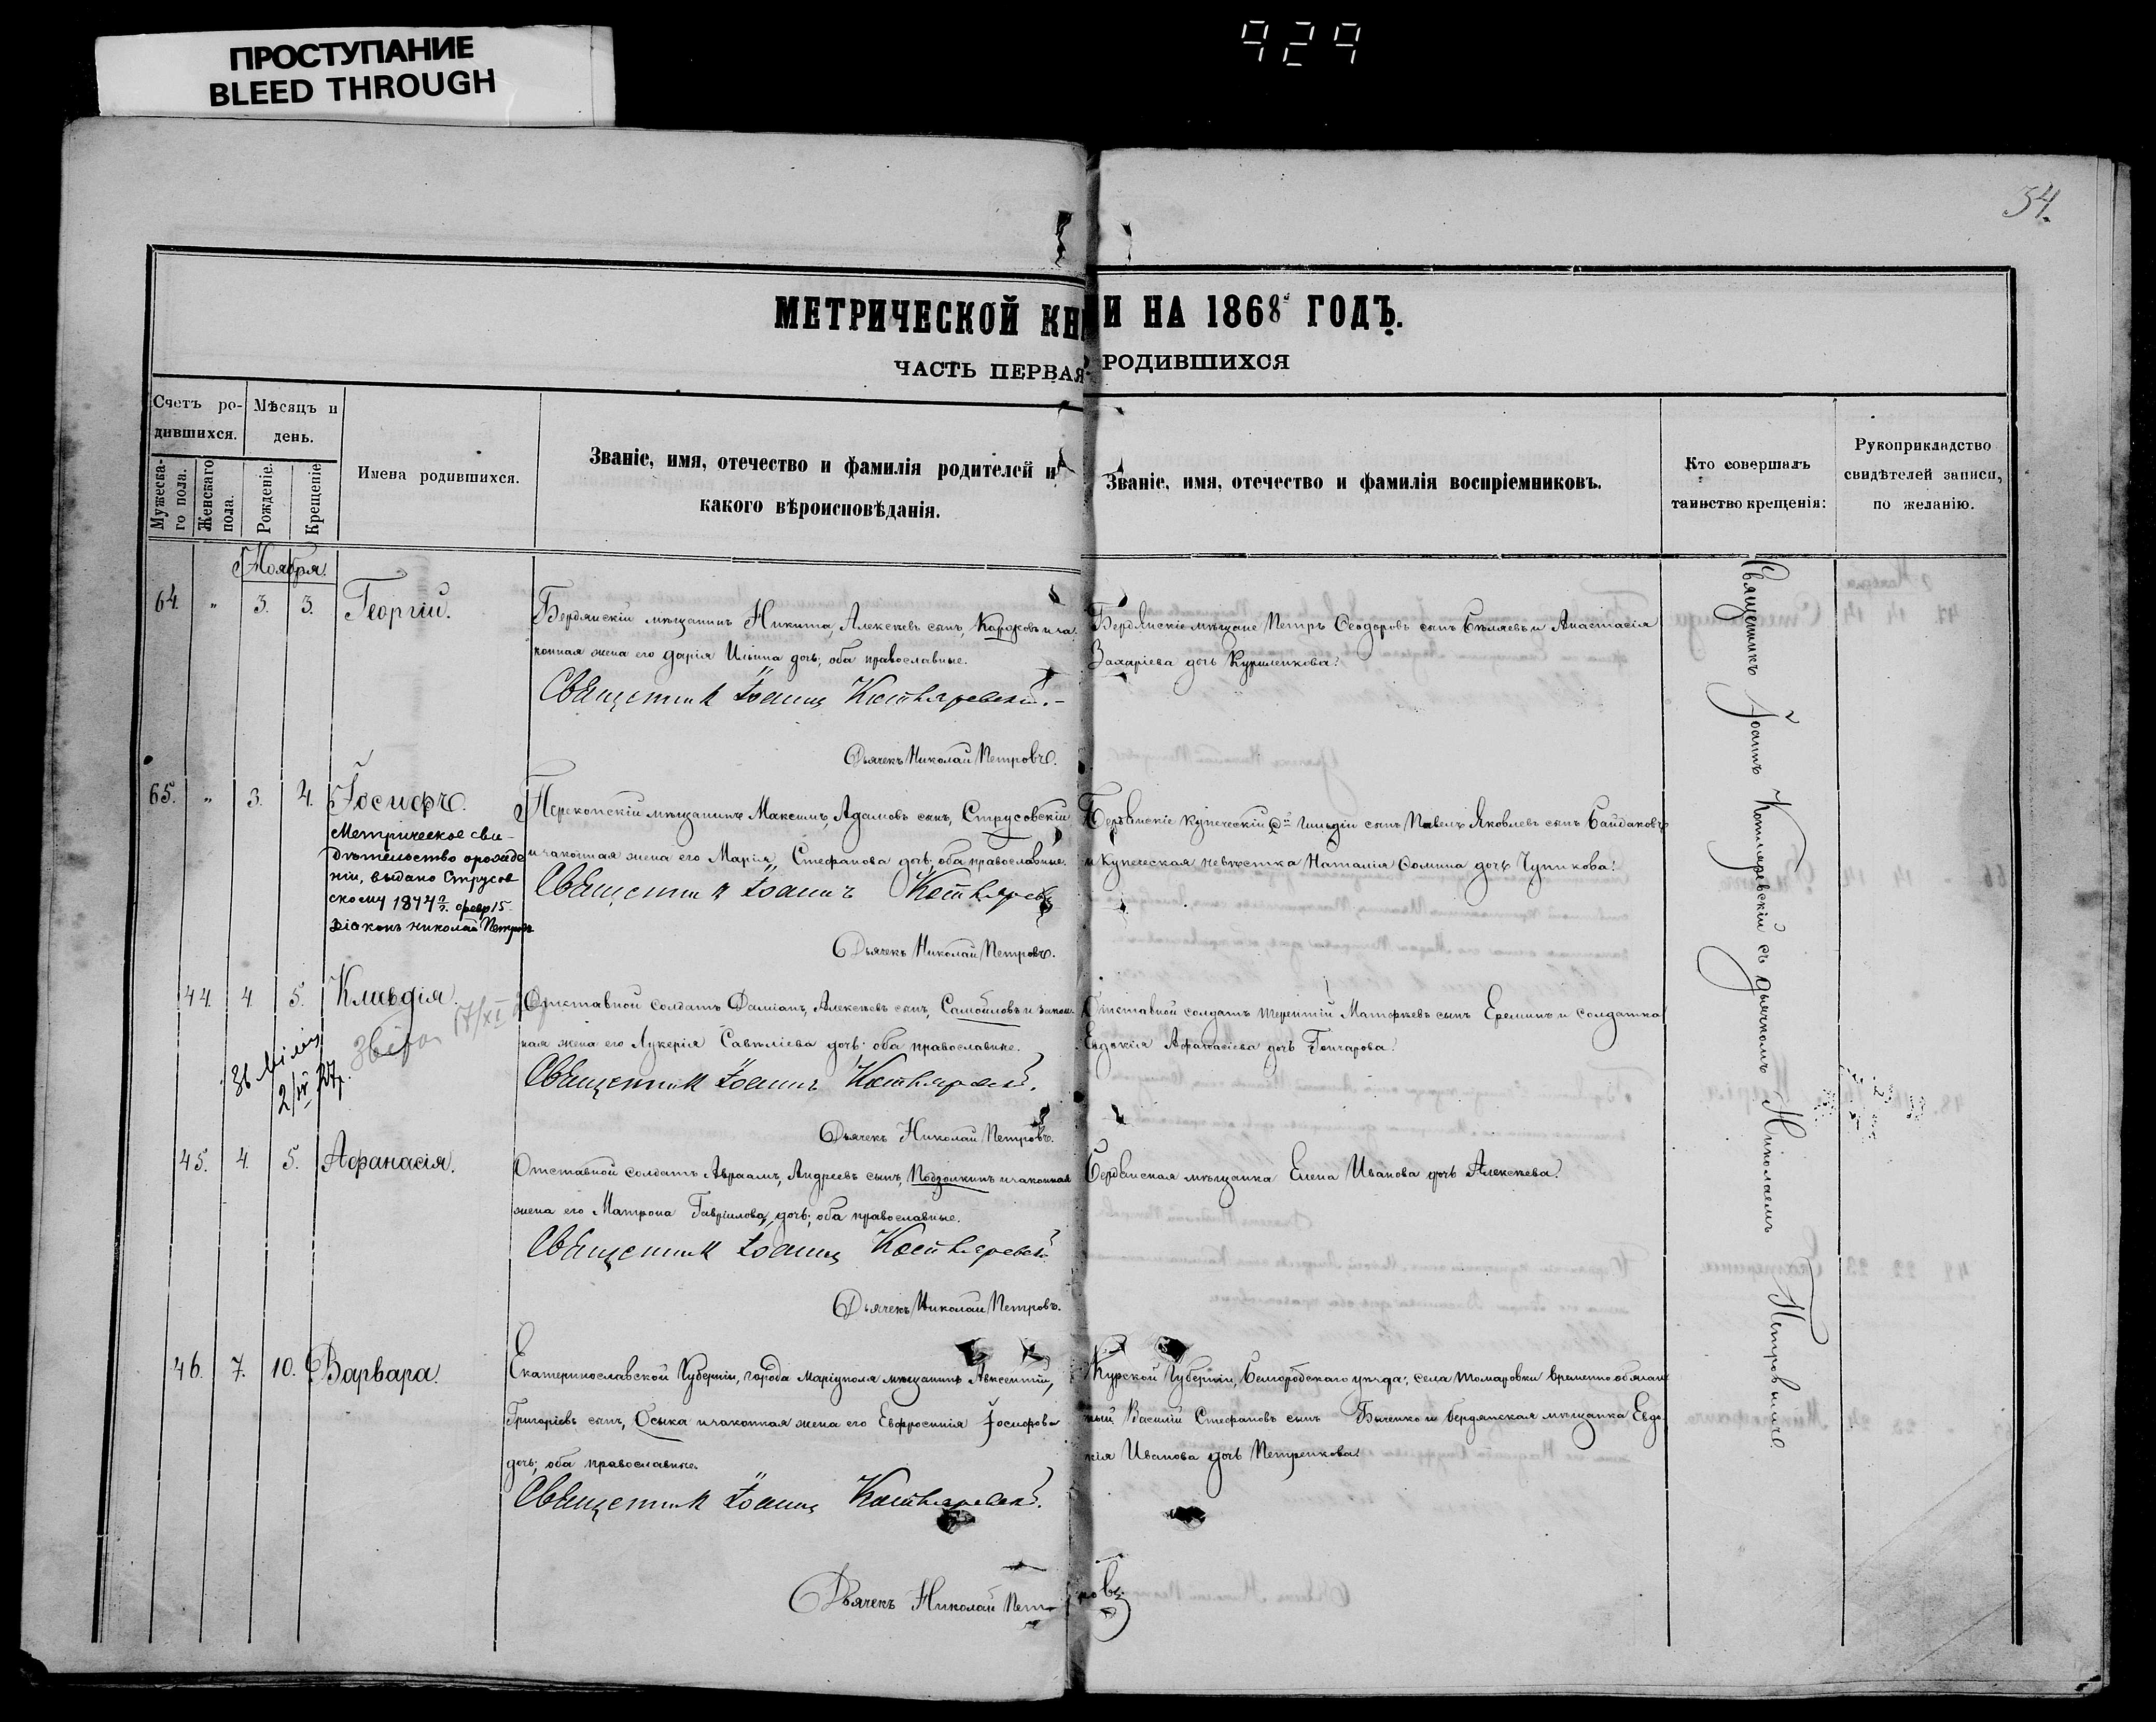 ПРОСТУПАНИЕ
BLEED THROUGH
929
34.
МЕТРИЧЕСКОЙ КНИ И НА 1868 ГОДЪ.
ЧАСТЬ ПЕРВАЯ РОДИВШИХСЯ
Счетъ ро-
дившихся.
Мѣсяцъ и
день.
Мужеска-
го пола.
Женскаго
пола.
Рожденіе.
Крещеніе
Имена родившихся.
Званіе, имя, отечество и фамилія родителей и
какого вѣроисповѣданія.
Званіе, имя, отечество и фамилія воспріемниковъ.
Кто совершалъ
таинство крещенія:
Рукоприкладство
свидѣтелей записи,
по желанію.
Ноября.
64. " 3. 3. Георгій.
Бердянскій мѣщанинъ Никита, Алексѣевъ сынъ, и за-
конная жена его Дарія Ильина дочь; оба православные.
Священник Іоанн Котляревскій.
Дьячекъ Николай Петровъ.
Бердянскіе мѣщане Петръ Ѳеодоровъ сынъ Бѣляевъ и Анастасія
Захаріева дочь Куриленкова.
65. " 3. 4. Іосифъ.
Метрическое сви-
дѣтельство орожде
ніи, выдано Струсов
скому 1874 г. февр 15
Діаконъ Николай Петровъ
Перекопскій мѣщанинъ Максимъ, Адамовъ сынъ, Струсовскій
и законная жена его Марія, Стефанова дочь; оба православные.
Священник Іоаннъ Котлярев
Дьячекъ Николай Петровъ.
Бердянскіе купеческій 2й гильдіи сынъ Павелъ Яковлевъ сынъ Байдаковъ
и купеческая невѣстка Наталія Ѳомина дочь
44. 4 5. Клавдія.
Отставной солдатъ Даміанъ, Алексѣевъ сынъ, Самойловъ и закон-
ная жена его Лукерія Савеліева дочь; оба православные.
Священник Іоаннъ Котляревскій.
Дьячекъ Николай Петровъ.
Отставной солдатъ Терентій Матфѣевъ сынъ Ереминъ и солдатка
Евдокія Афанасіева дочь Гончарова.
45. 4. 5. Афанасія.
Отставной солдатъ Авраамъ, Андреевъ сынъ, Подзолкинъ и законная
жена его Матрона Гавріилова дочь; оба православные.
Священник Іоанн Котляревскій
Дьячекъ Николай Петровъ.
Бердянская мѣщанка Елена Иванова дочь Алексѣева.
46. 7. 10. Варвара.
Екатеринославской Губерніи, города Маріуполя мѣщанинъ Авксентій,
Григоріевъ сынъ, Осыка и законная жена его Евфросинія Іосифова
дочь; оба православные.
Священник Іоанн Котляревскій.
Дьячекъ Николай Петровъ
Курской Губерніи, Белгородскаго уѣзда, села Томаровки временно обязан
ный Василій Стефановъ сынъ и бердянская мѣщанка Евдо-
кія Иванова дочь Петренкова.
Священникъ Іоаннъ Котляревскій съ дьячкомъ Николаемъ Петровымъ